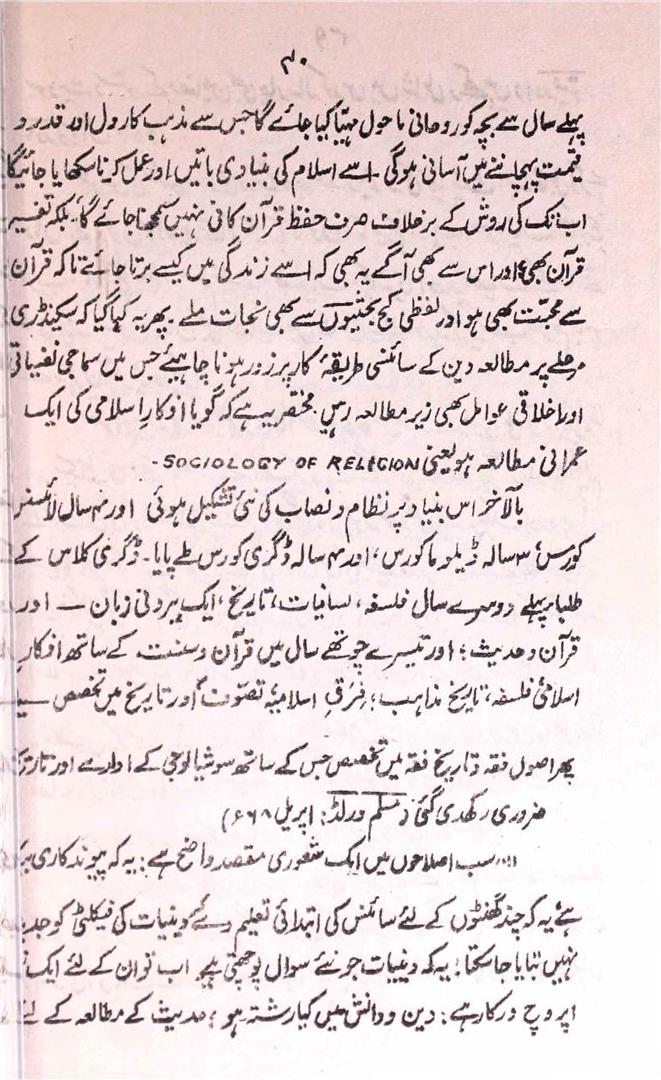 ۴۰
پہلے سال سے بچہ کو روحانی ماحول مہیّا کیا جائے گا جس سے مذہب کا رول اور قدر و
قیمت پہچاننے میں آسانی ہوگی۔ اسے اسلام کی بنیادی باتیں اور عمل کرنا سکھایا جائیگا
اب تک کی روش کے برخلاف صرف حفظ قرآن کافی نہیں سمجھا جائے گا، بلکہ تفسیر
قرآن بھی؛ اور اس سے بھی آگے یہ بھی کہ اسے زندگی میں کیسے برتا جائے تاکہ قرآن
سے محبّت بھی ہو اور لفظی کج بحثیوں سے بھی نجات ملے۔ پھر یہ کہا گیا کہ سکینڈری
مرحلے پر مطالعہ دین کے سائنسی طریقۂ کار پر زور ہونا چاہیئے جس میں سماجی نفسیاتی
اور اخلاقی عوامل بھی زیر مطالعہ رہیں۔ مختصر یہ ہے کہ گویا افکارِ اسلامی کی ایک
عمرانی مطالعہ ہو یعنی SOCIOLOGY OF RELIGION -
بالآخر اس بنیاد پر نظام و نصاب کی نئی تشکیل ہوئی اور ۴ سال لائسنر
کورس، ۳ سالہ ڈپلوما کورس، اور ۴ سالہ ڈگری کورس طے پایا۔ ڈگری کلاس کے
طلباء پہلے دوسرے سال فلسفہ، لسانیات، تاریخ، ایک بیرونی زبان — اور
قرآن و حدیث؛ اور تیسرے چوتھے سال میں قرآن و سنت کے ساتھ افکارِ
اسلامی فلسفہ، تاریخ مذاہب؛ فِرَقِ اسلامیہ، تصوّف اور تاریخ میں تخصص
پھر اصول فقہ و تاریخ فقہ میں تخصیص جس کے ساتھ سوشیالوجی کے ادارے اور تاریخ
ضروری رکھدی گئی (مسلم ورلڈ: اپریل ۶۶۸)
ان سب اصلاحوں میں ایک شعوری مقصد واضح ہے: یہ کہ پیوندکاری
ہے یہ کہ چند گھنٹوں کے لئے سائنس کی ابتدائی تعلیم دے کے دینیات کی فیکلٹی کو جدید
نہیں بنایا جا سکتا؛ یہ کہ دینیات جو نئے سوال پوچھتی ہے اب تو ان کے لئے ایک
اپروچ درکار ہے: دین و دانش میں کیا رشتہ ہو؛ حدیث کے مطالعہ کے لئے